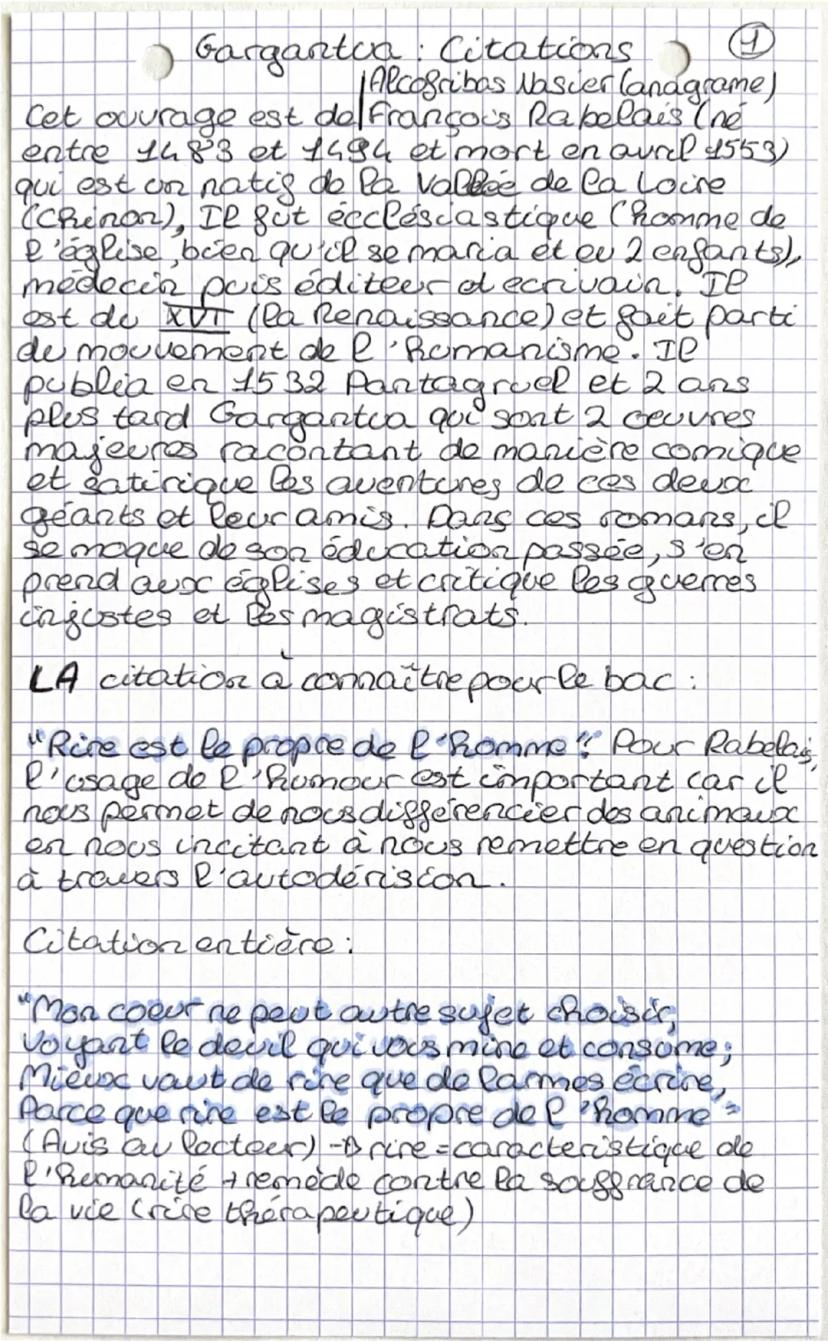 Gargantua : Citations ①
Alcofribas Nasier (anagrame)
Cet ouvrage est de François Rabelais (né
entre 1483 et 1494 et mort en avril 1553)
qui est un natif de la Vallée de la Loire
(Chinon), Il fut écclésiastique (homme de
l'église, bien qu'il se maria et eu 2 enfants),
médecin puis éditeur et ecrivain. Il
est du XVI (la Renaissance) et fait parti
du mouvement de l'Humanisme. Il
publia en 1532 Pantagruel et 2 ans
plus tard Gargantua qui sont 2 oeuvres
majeures racontant de manière comique
et satirique les aventures de ces deux
géants et leur amis. Dans ces romans, il
se moque de son éducation passée, s'en
prend aux églises et critique les guerres
injustes et les magistrats.
LA citation à connaître pour le bac :
"Rire est le propre de l'homme". Pour Rabelais,
l'usage de l'humour est important car il
nous permet de nous différencier des animaux
en nous incitant à nous remettre en question
à travers l'autodérision.
Citation entière :
"Mon coeur ne peut autre sujet choisir,
Voyant le deuil qui vous mine et consume;
Mieux vaut de rire que de larmes écrire,
Parce que rire est le propre de l'homme"
(Avis au lecteur) → rire = caracteristique de
l'humanité + remède contre la souffrance de
la vie (rire thérapeutique)